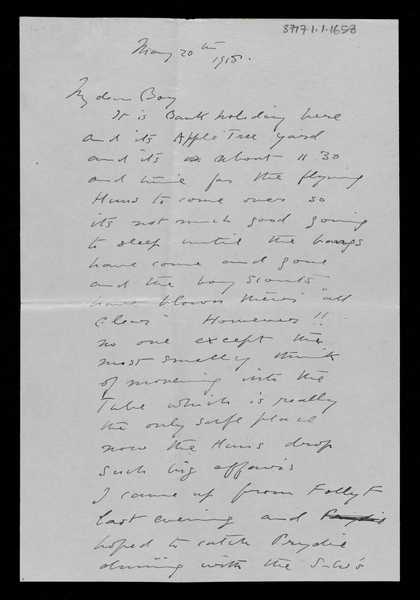 3717.1.1.1658
May 20th
1918.
My dear Boy
It is Bank holiday here
and its Apple Tree Yard
and its about 11 30
and time for the flying
Huns to come over so
its not much good going
to sleep until the
have come and gone
and the boy scouts
have blown their "all
clear" However !!
no one except the
most smelly think
of moving into the
Tube which is really
the only safe place
now the Huns drop
such big affairs
I came up from Folly F
last evening and
hoped to catch Prydie
dining with the